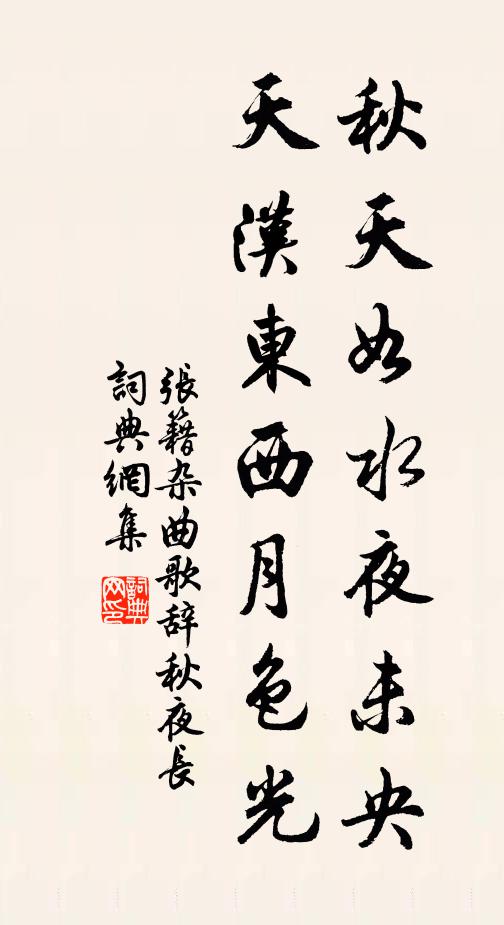 秋天如水夜未央
天漢東西月色光
張籍杂曲歌辞秋夜長
詞典網集
詞典
网印